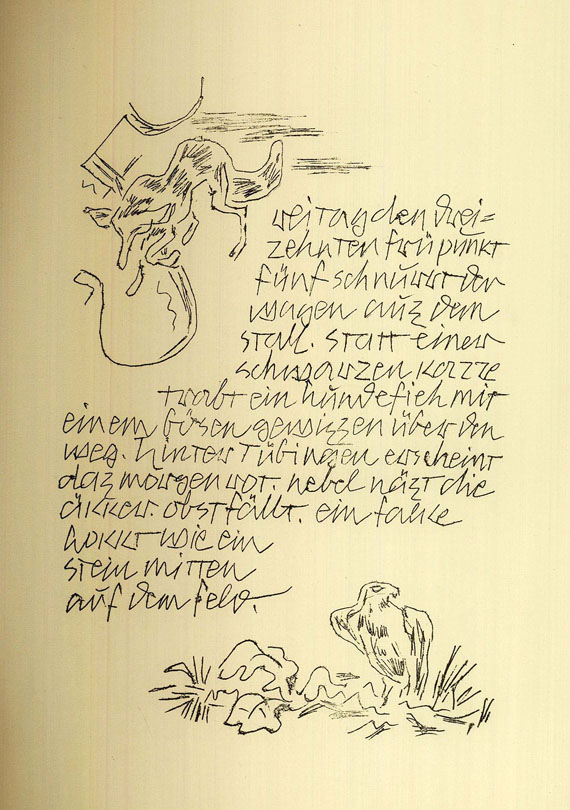 reitag den drei=
zehnten frü punkt
fünf schnurrt der
wagen auz dem
stall. statt einer
schwarzen kazze
trabt ein hundefieh mit
einem bösen gewizzen über den
weg. hinter Tübingen erscheint
daz morgenrot. nebel näzt die
äkker. obst fällt. ein falke
hokkt wie ein
stein mitten
auf dem feld.